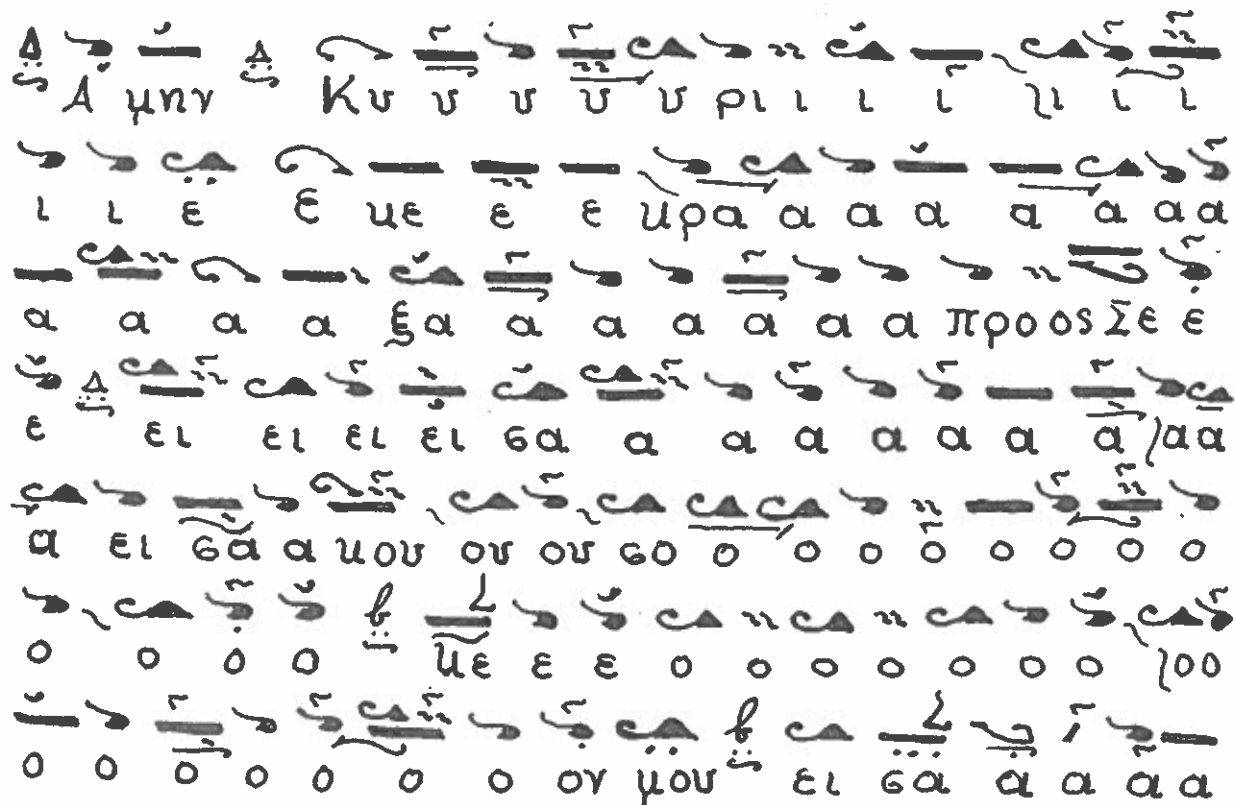 Δ Ἀ μην Δ Κυ υ υ υ υ ρι ι ι ι ι ι ι
ι ι ε Ε κε ε ε κρα α α α α α α α
α α α α ξα α α α α α α προ ος Σε ε
ε Δ ει ει ει ει σα α α α α α α α α α
α ει σα α κου ου ου σο ο ο ο ο ο ο ο ο
ο ο ο ο β κε ε ε ο ο ο ο ο ο ο ο ο
ο ο ο ο ο ο ο ον μου β ει σα α α α α